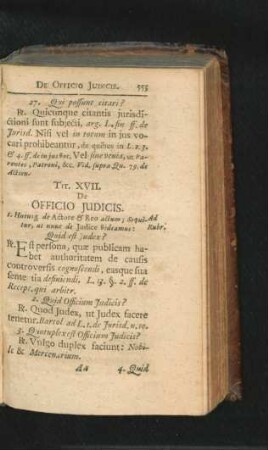 DE OFFICIO JUDICIS. 555
27. Qui possunt citari?
R. Quicunque citantis jurisdi-
ctioni sunt subjecti, arg. L. fin ff. de
Jurisd. Nisi vel in totum in jus vo-
cari prohibeantur, de quibus in L. 2. 3.
& 4. ff. de in jus voc. Vel sine venia, ut Pa-
rentes, Patroni, &c. Vid. supra Qu. 79. de
Action.
TIT. XVII.
DE
OFFICIO JUDICIS.
1. Hucusq; de Actore & Reo actum; sequi- Ad
tur, ut nunc de Judice videamus: Rubr.
Quid est judex?
R. Est persona, quæ publicam ha-
bet authoritatem de causis
controversis cognoscendi, easque sua
sententia definiendi, L. 13. §. 2. ff. de
Recept, qui arbitr.
2. Quid Officium Judicis?
R. Quod Judex, ut Judex facere
tenetur. Bartol. ad L. 1. de Jurisd. n. 10.
3. Quotuplex est Officium Judicis?
R. Vulgo duplex faciunt: Nobi-
le & Mercenarium.
Aa 4. Quid